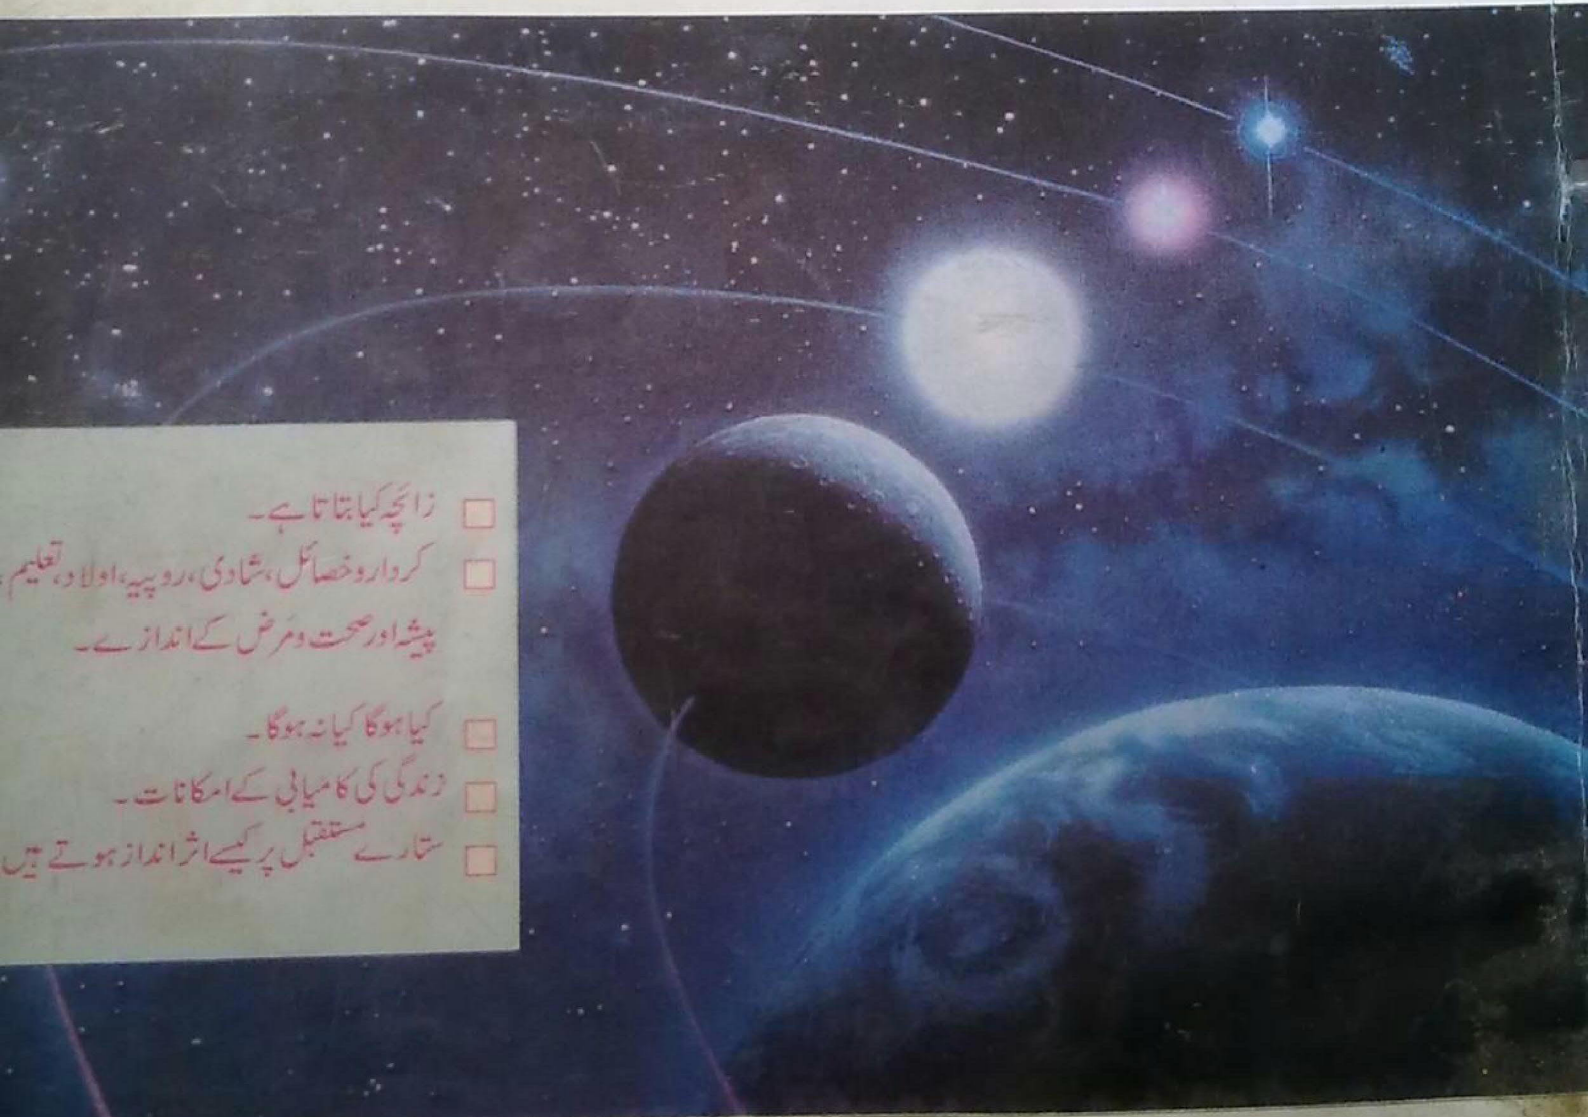 زائچہ کیا بتاتا ہے۔
کردار و خصائل، شادی، روپیہ، اولاد، تعلیم،
پیشہ اور صحت و مرض کے اندازے۔
کیا ہوگا کیا نہ ہوگا۔
زندگی کی کامیابی کے امکانات۔
ستارے مستقبل پر کیسے اثر انداز ہوتے ہیں